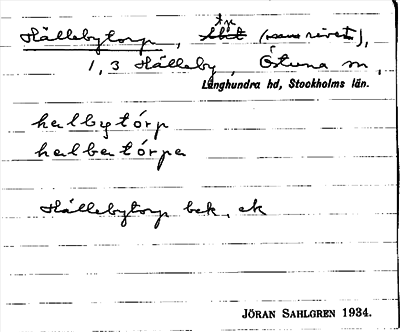 tp
Hällebytorp, (som rivet),
1, 3 Hälleby, Östuna sn,
Långhundra hd, Stockholms län.
halbytórp
halbatórpa
Hällebytorp bek. ek
JÖRAN SAHLGREN 1934.